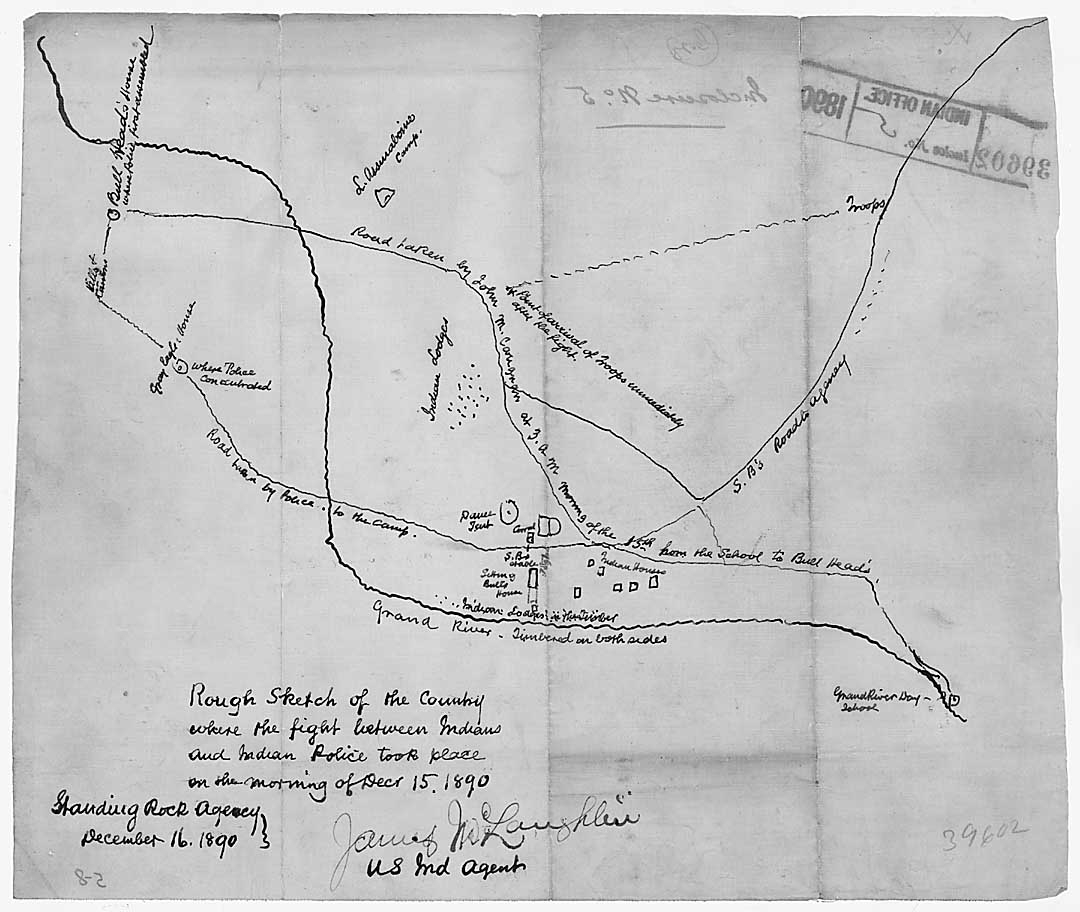 Inclosure No. 5
INDIAN OFFICE
Inclos. No. 5
1890
39602
L. Assinaboine
Camp.
Bull Head's House
where Police first assembled
Troops
Road taken by John M. Carignan at 7 A M morning of the 15th from the School to Bull Head's
Point of arrival of Troops immediately
after the fight.
Gray Eagle's House
where Police
Concentrated
Indian Lodges
S. B's Road to Agency
Road taken by Police to the Camp.
Dance
Tent
Corral
S. B's
stable
Sitting
Bull's
House
Indian Houses
Indian Lodges in the Timber
Grand River - Timbered on both sides
Grand River Day
School
Rough Sketch of the Country
where the fight between Indians
and Indian Police took place
on the morning of Decr 15. 1890
Standing Rock Agency
December 16. 1890
James McLaughlin
US Ind Agent
39602
8-2